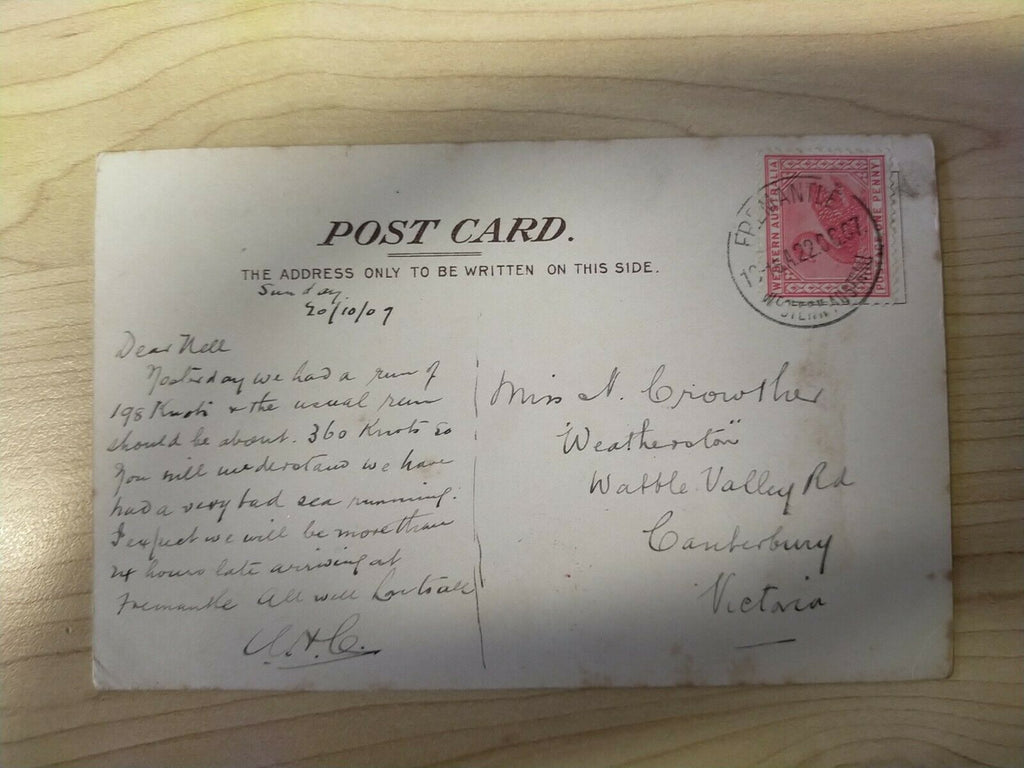 POST CARD.
THE ADDRESS ONLY TO BE WRITTEN ON THIS SIDE.
Sunday
20/10/07
Dear Nell
Yesterday we had a run of
198 Knots & the usual run
should be about. 360 Knots so
You will understand we have
had a very bad sea running.
I expect we will be more than
24 hours late arriving at
Fremantle All well
Miss N. Crowther
"Weatherston"
Wattle Valley Rd
Canterbury
Victoria
WESTERN AUSTRALIA
ONE PENNY
FREMANTLE
22 OC 07
WESTERN AUSTRALIA